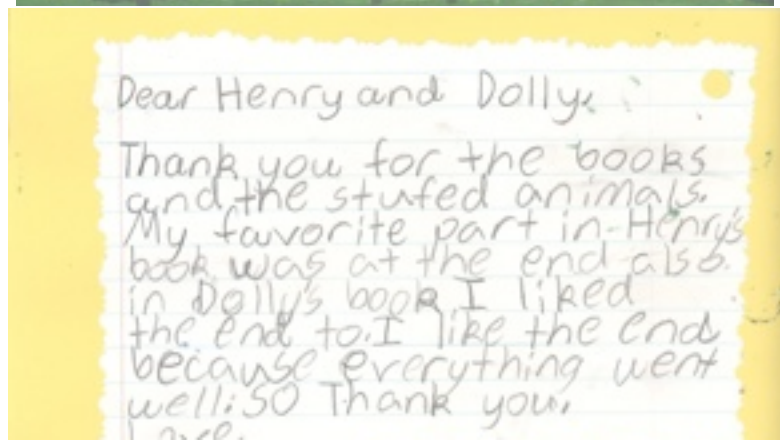 Dear Henry and Dolly,
Thank you for the books
and the stufed animals.
My favorite part in Henry's
book was at the end also
in Dolly's book I liked
the end to. I like the end
because everything went
well. SO Thank you.
Love,